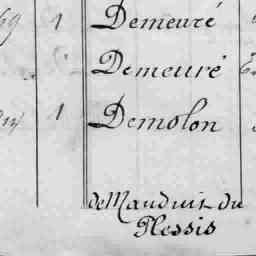 1 Demeuré
Demeuré
1 Demolon
de Mauduit du
Plessis